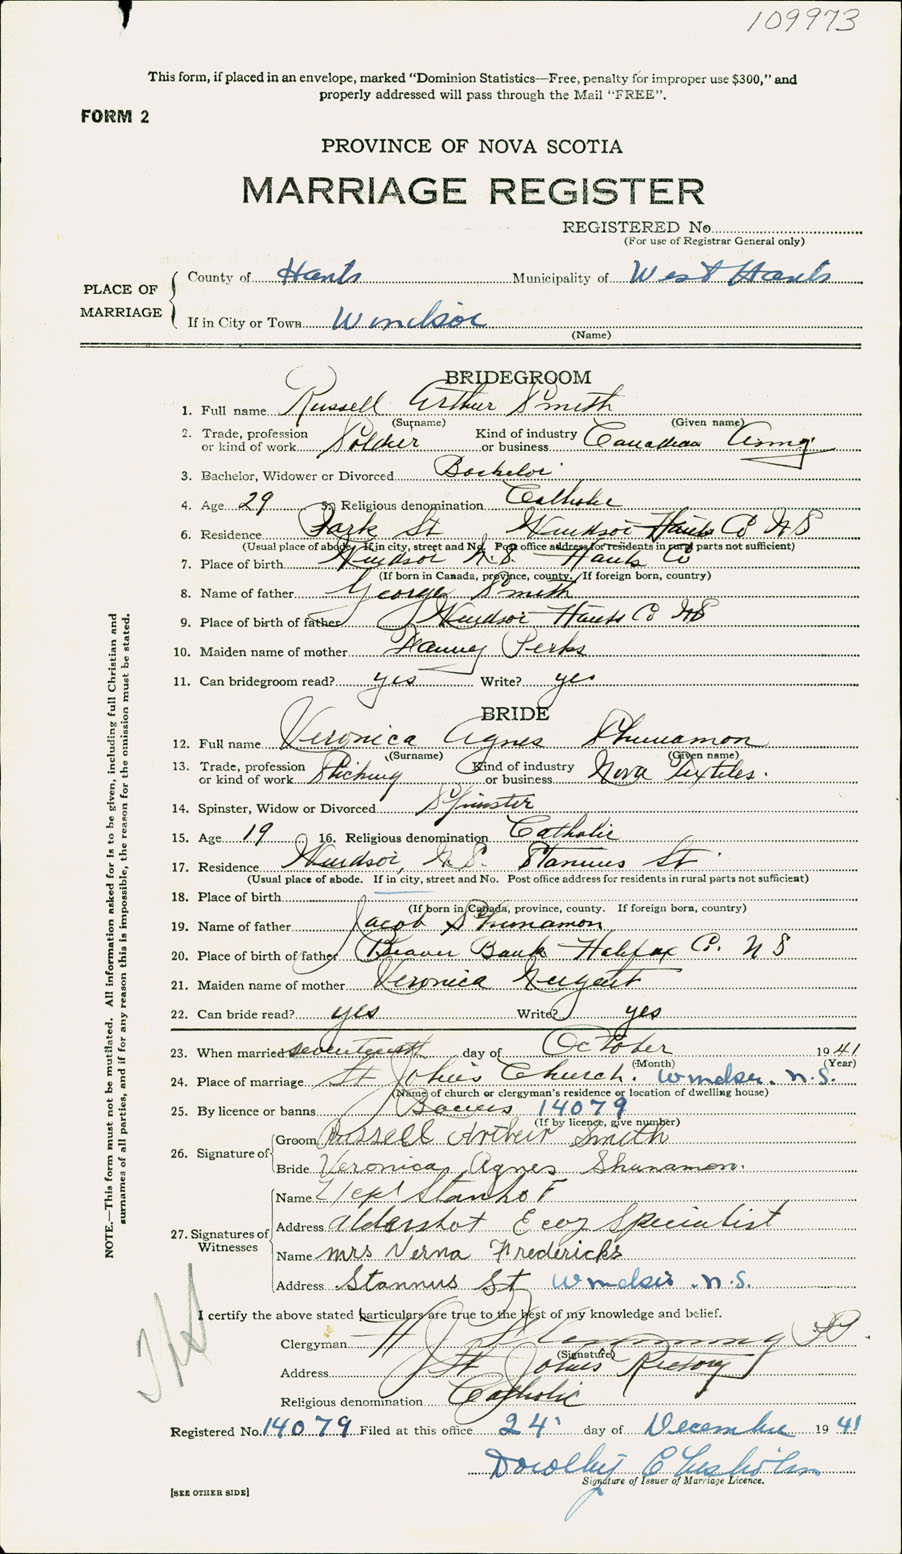 109973
This form, if placed in an envelope, marked "Dominion Statistics—Free, penalty for improper use $300," and
properly addressed will pass through the Mail "FREE".
FORM 2
PROVINCE OF NOVA SCOTIA
MARRIAGE REGISTER
REGISTERED No.
(For use of Registrar General only)
PLACE OF MARRIAGE
County of Hants Municipality of West Hants
If in City or Town Windsor
(Name)
BRIDEGROOM
1. Full name Russell Arthur Smith
(Surname) (Given name)
2. Trade, profession or kind of work Soldier Kind of industry or business Canadian Army
3. Bachelor, Widower or Divorced Bachelor
4. Age 29 5. Religious denomination Catholic
6. Residence Park St Windsor Hants Co N S
(Usual place of abode. If in city, street and No. Post office address for residents in rural parts not sufficient)
7. Place of birth Windsor N.S. Hants Co
(If born in Canada, province, county. If foreign born, country)
8. Name of father George Smith
9. Place of birth of father Windsor Hants Co NS
10. Maiden name of mother Fanny Perks
11. Can bridegroom read? yes Write? yes
BRIDE
12. Full name Veronica Agnes Shunamon
(Surname) (Given name)
13. Trade, profession or kind of work Kind of industry or business Nova Textiles.
14. Spinster, Widow or Divorced Spinster
15. Age 19 16. Religious denomination Catholic
17. Residence Windsor, N.S. Stannus St
(Usual place of abode. If in city, street and No. Post office address for residents in rural parts not sufficient)
18. Place of birth
(If born in Canada, province, county. If foreign born, country)
19. Name of father Jacob Shunamon
20. Place of birth of father Beaver Bank Halifax Co. N S
21. Maiden name of mother Veronica Nugent
22. Can bride read? yes Write? yes
23. When married seventeenth day of October 1941
(Month) (Year)
24. Place of marriage St John's Church. Windsor. N.S.
(Name of church or clergyman's residence or location of dwelling house)
25. By licence or banns Banns 14079
(If by licence, give number)
26. Signature of
Groom Russell Arthur Smith
Bride Veronica Agnes Shunamon.
27. Signatures of Witnesses
Name
Address Aldershot
Name Mrs Verna Fredericks
Address Stannus St Windsor. N.S.
I certify the above stated particulars are true to the best of my knowledge and belief.
Clergyman
(Signature)
Address St Johns Rectory
Religious denomination Catholic
Registered No. 14079 Filed at this office 24 day of December 1941
Dorothy Chisholm
Signature of Issuer of Marriage Licence.
[SEE OTHER SIDE]
NOTE.—This form must not be mutilated. All information asked for is to be given, including full Christian and
surnames of all parties, and if for any reason this is impossible, the reason for the omission must be stated.